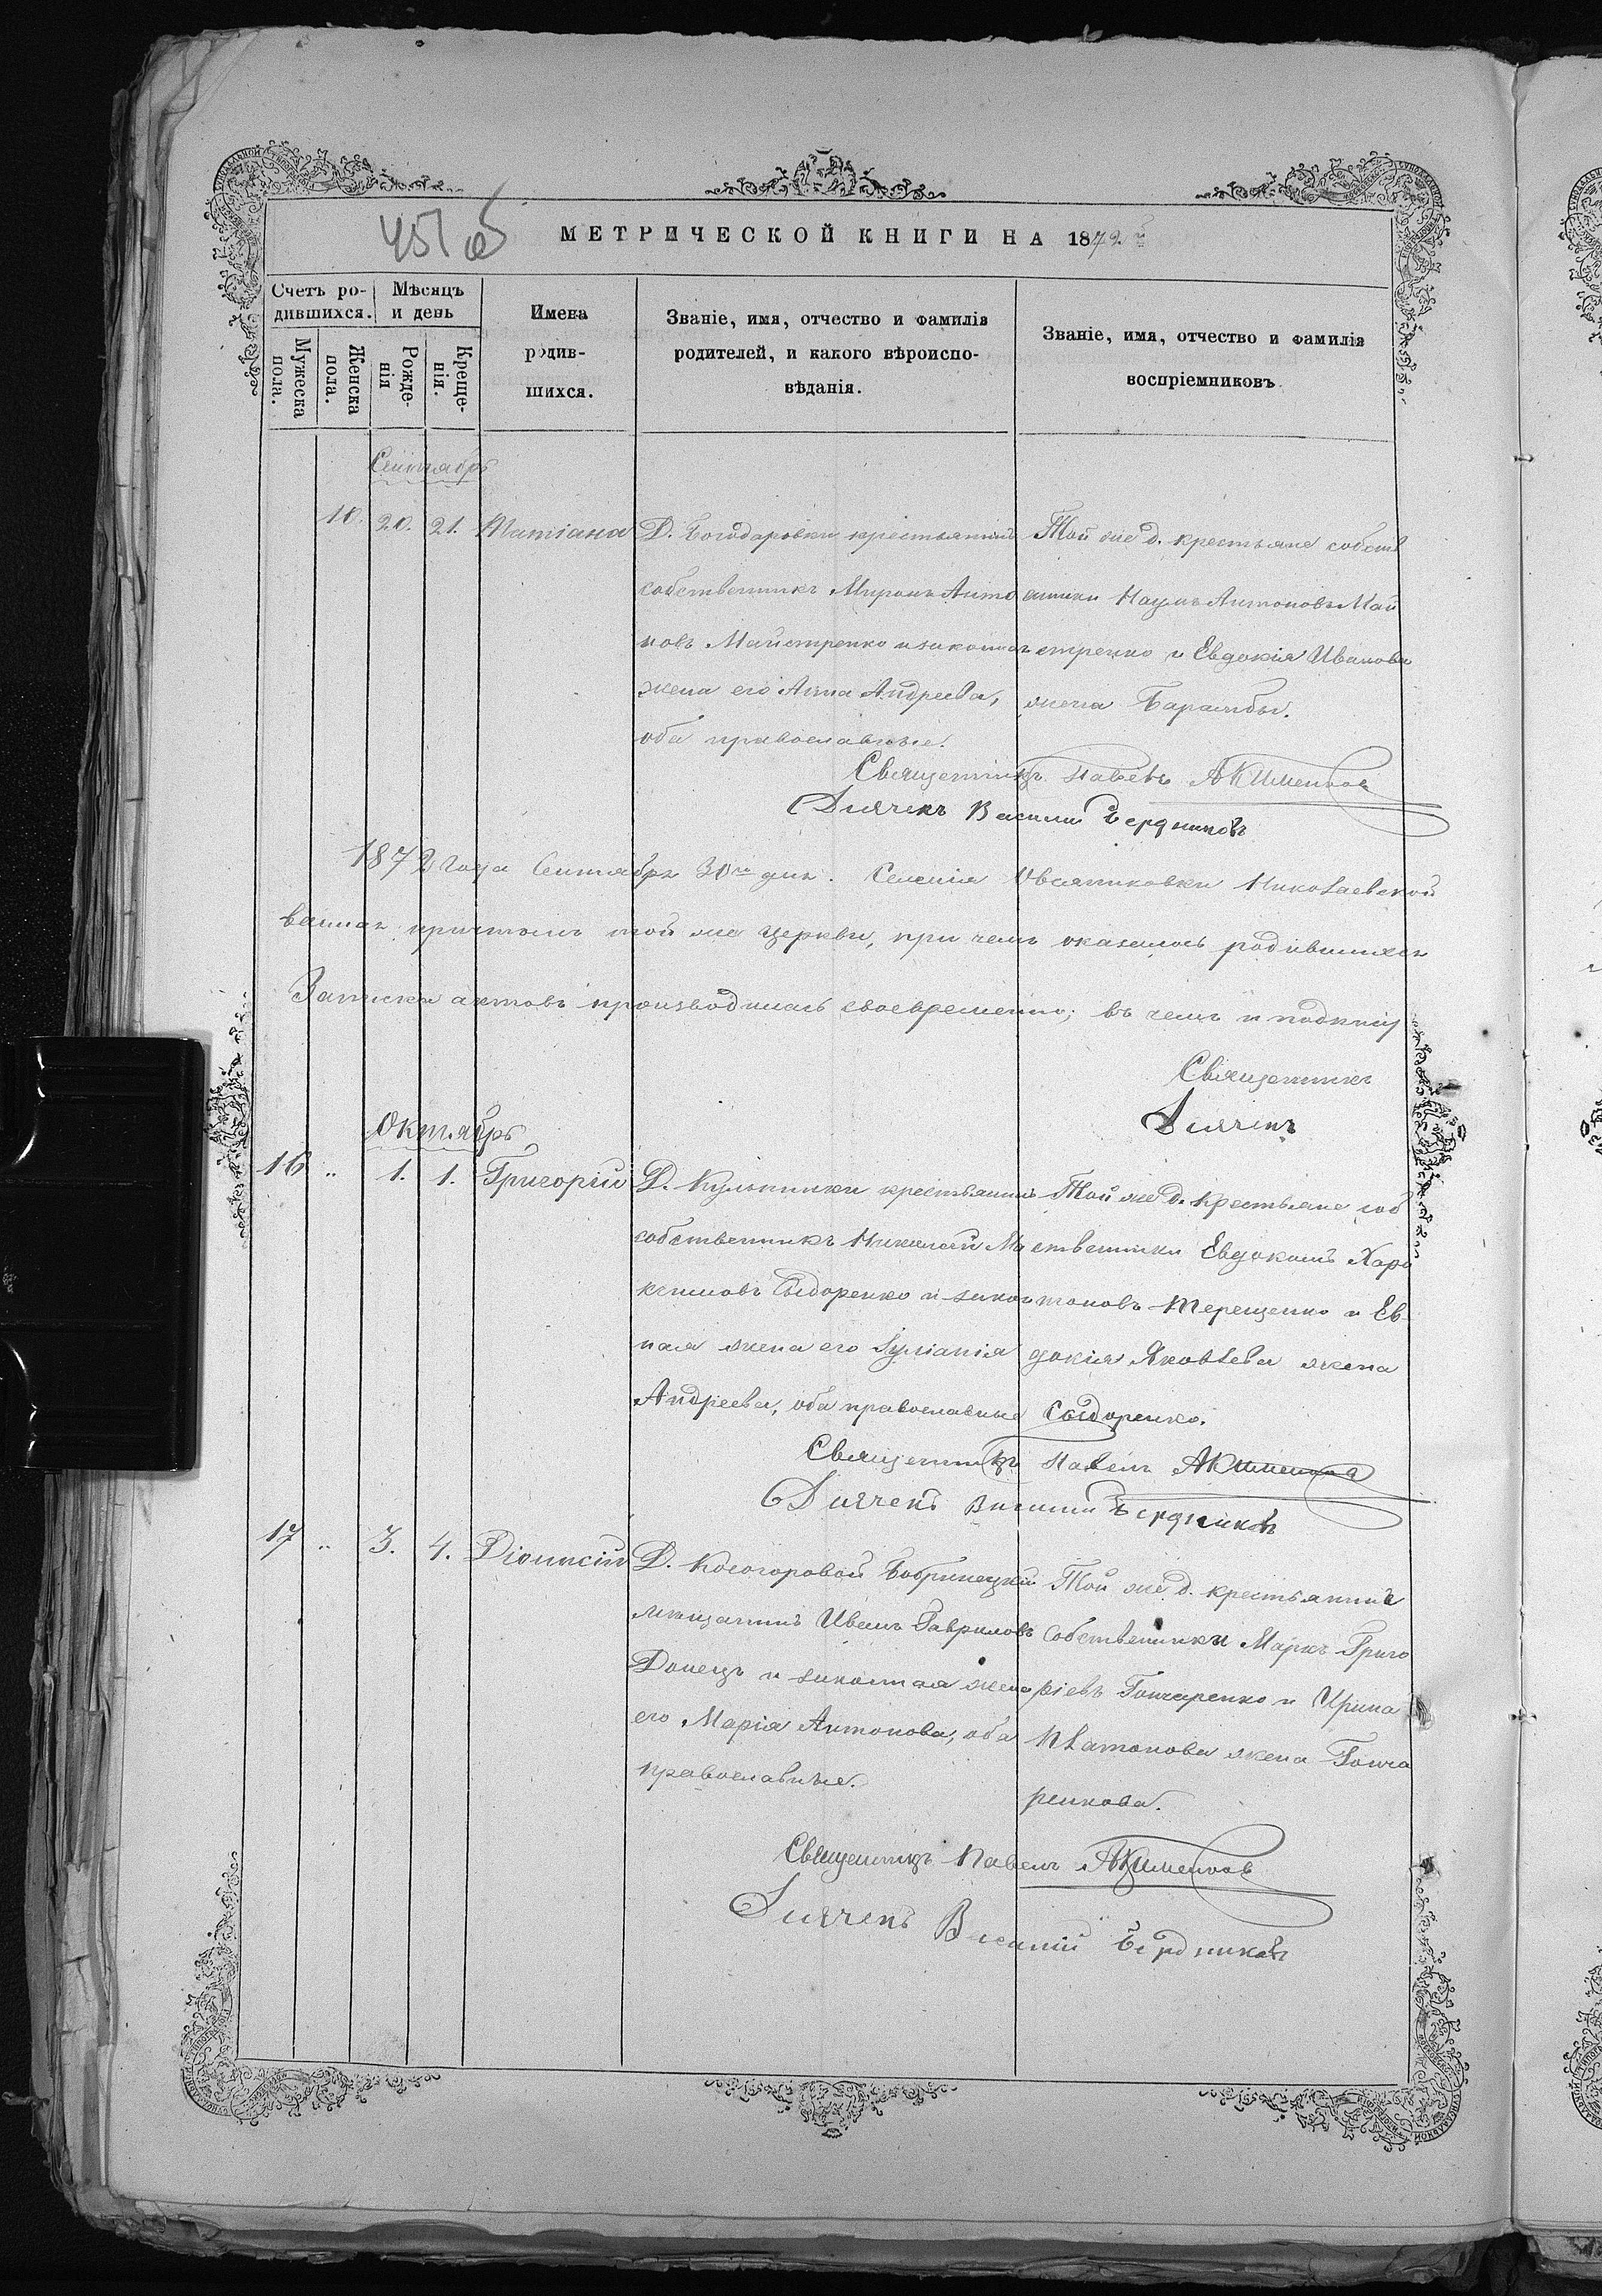 451 об
МЕТРИЧЕСКОЙ КНИГИ НА 1872 й
Счетъ ро-
дившихся.
Мужеска
пола.
Женска
пола.
Мѣсяцъ
и день
Рожде-
нія
Креще-
нія.
Имена
родив-
шихся.
Званіе, имя, отчество и фамилія
родителей, и какого вѣроиспо-
вѣданія.
Званіе, имя, отчество и фамилія
воспріемниковъ
Сентябрь
10. 20. 21. Татіана
Д. Богодаровки крестьянинъ
собственникъ Миронъ Анто
новъ Майстренко и законная
жена его Анна Андреева,
оба православные.
Той же д. крестьяне собств
енники Наумъ Антоновъ Май
стренко и Евдокія Иванова
жена Барамбы.
Священникъ Павелъ Акименковъ
Дьячекъ Василій Бердниковъ
1872 года Сентября 30го дня. Селенія Овсяниковки Николаевской
ванная причтомъ той же церкви, при чемъ оказалось родившихся
Записка актовъ производилась своевременно; въ чемъ и подпису
Священникъ
Дьячекъ
Октябрь
16 " 1. 1. Григорій
Д. Кулькинки крестьянинъ
собственникъ Николай Ма
ксимовъ Сыдоренко и закон
ная жена его Іуліанія
Андреева, оба православные
Той же д. крестьяне соб
ственники Евдокимъ Хари
тоновъ Терещенко и Ев
докія Яковлева жена
Сыдоренко.
Священникъ Павелъ Акименковъ
Дьячекъ Василій Бердниковъ
17 " 3. 4. Діонисій
Д. Косогоровой Бобринецкій
мѣщанинъ Иванъ Гавриловъ
Донецъ и законная жена
его Марія Антонова, оба
православные.
Той же д. крестьянинъ
собственники Маркъ Григо
ріевъ Гончаренко и Ирина
Платонова жена Гонча
ренкова.
Священникъ Павелъ Акименковъ
Дьячекъ Василій Бердниковъ